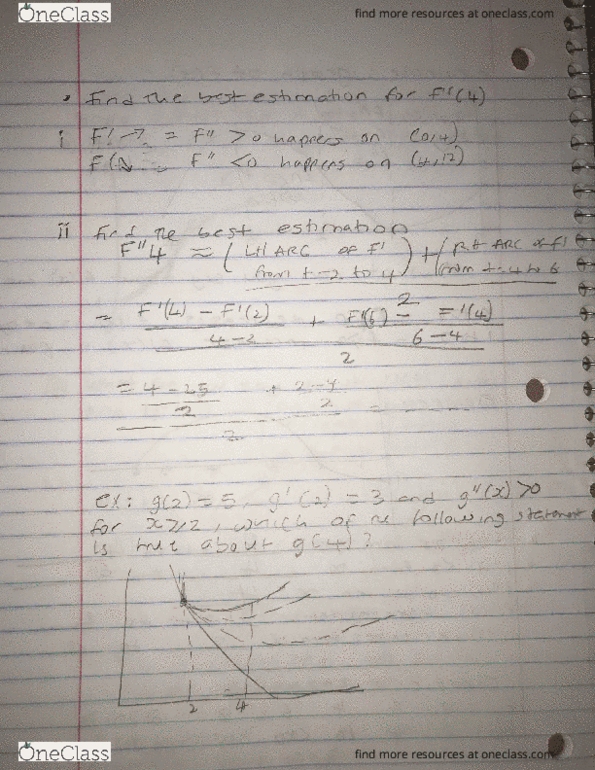 OneClass
find more resources at oneclass.com
Find the best estimation for F'(4)
i F' ↗ = F" > 0 happens on (0,4)
F" < 0 happens on (4,12)
ii Find the best estimation
F"4 ≈ ( LH ARC OF F' ) + ( RH ARC of f'
from t=2 to 4 from t=4 to 6
2
= F'(4) - F'(2) + F'(6) - '(4)
4-2 6-4
2
= 4 - 25 + 2-4
2 2 =
2
ex: g(2) = 5, g'(2) = 3 and g"(x) > 0
for x≥2, which of the following statement
is true about g(4)?
2 4
OneClass
find more resources at oneclass.com